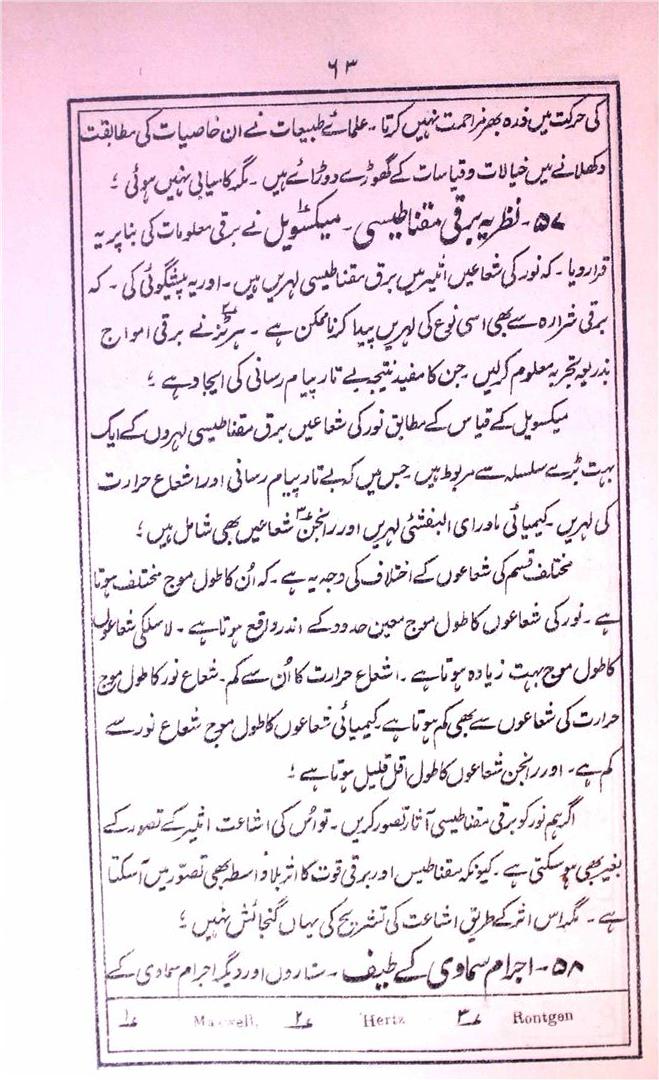 ۶۳
کی حرکت میں ذرہ بھر مزاحمت نہیں کرتا۔ علمائے طبیعات نے ان خاصیات کی مطابقت
دکھلانے میں خیالات و قیاسات کے گھوڑے دوڑائے ہیں۔ مگر کامیابی نہیں ہوئی ؛
۵۷۔ نظریہ برقی مقناطیسی۔ میکسویل۱؎ نے برقی معلومات کی بنا پر یہ
قرار دیا۔ کہ نور کی شعاعیں اثیر میں برق مقناطیسی لہریں ہیں۔ اور یہ پیشگوئی کی۔ کہ
برقی شرارہ سے بھی اسی نوع کی لہریں پیدا کرنا ممکن ہے۔ ہرٹز۲؎ نے برقی امواج
بذریعہ تجربہ معلوم کرلیں جن کا مفید نتیجہ بے تار پیام رسانی کی ایجاد ہے ؛
میکسویل کے قیاس کے مطابق نور کی شعاعیں برق مقناطیسی لہروں کے ایک
بہت بڑے سلسلہ سے مربوط ہیں جس میں کہ بے تار پیام رسانی اور اشعاع حرارت
کی لہریں۔ کیمیائی ماورای البنفشئی لہریں اور رانجن۳؎ شعاعیں بھی شامل ہیں ؛
مختلف قسم کی شعاعوں کے اختلاف کی وجہ یہ ہے۔ کہ اُن کا طول موج مختلف ہوتا
ہے۔ نور کی شعاعوں کا طول موج معین حدود کے اندر واقع ہوتا ہے۔ لاسلکی شعاعوں
کا طول موج بہت زیادہ ہوتا ہے۔ اشعاع حرارت کا اُن سے کم۔ شعاع نور کا طول موج
حرارت کی شعاعوں سے بھی کم ہوتا ہے۔ کیمیائی شعاعوں کا طول موج شعاع نور سے
کم ہے۔ اور رانجن شعاعوں کا طول اقل قلیل ہوتا ہے ؛
اگر ہم نور کو برقی مقناطیسی آثار تصور کریں۔ تو اُس کی اشاعت اثیر کے تصور کے
بغیر بھی ہوسکتی ہے۔ کیونکہ مقناطیس اور برقی قوت کا اثر بلا واسطہ بھی تصوّر میں آسکتا
ہے۔ مگر اس اثر کے طریق اشاعت کی تشریح کی یہاں گنجائش نہیں ؛
۵۸۔ اجرام سماوی کے طیف۔ ستاروں اور دیگر اجرام سماوی کے
۱؎ Maxwell. ۲؎ Hertz ۳؎ Rontgen